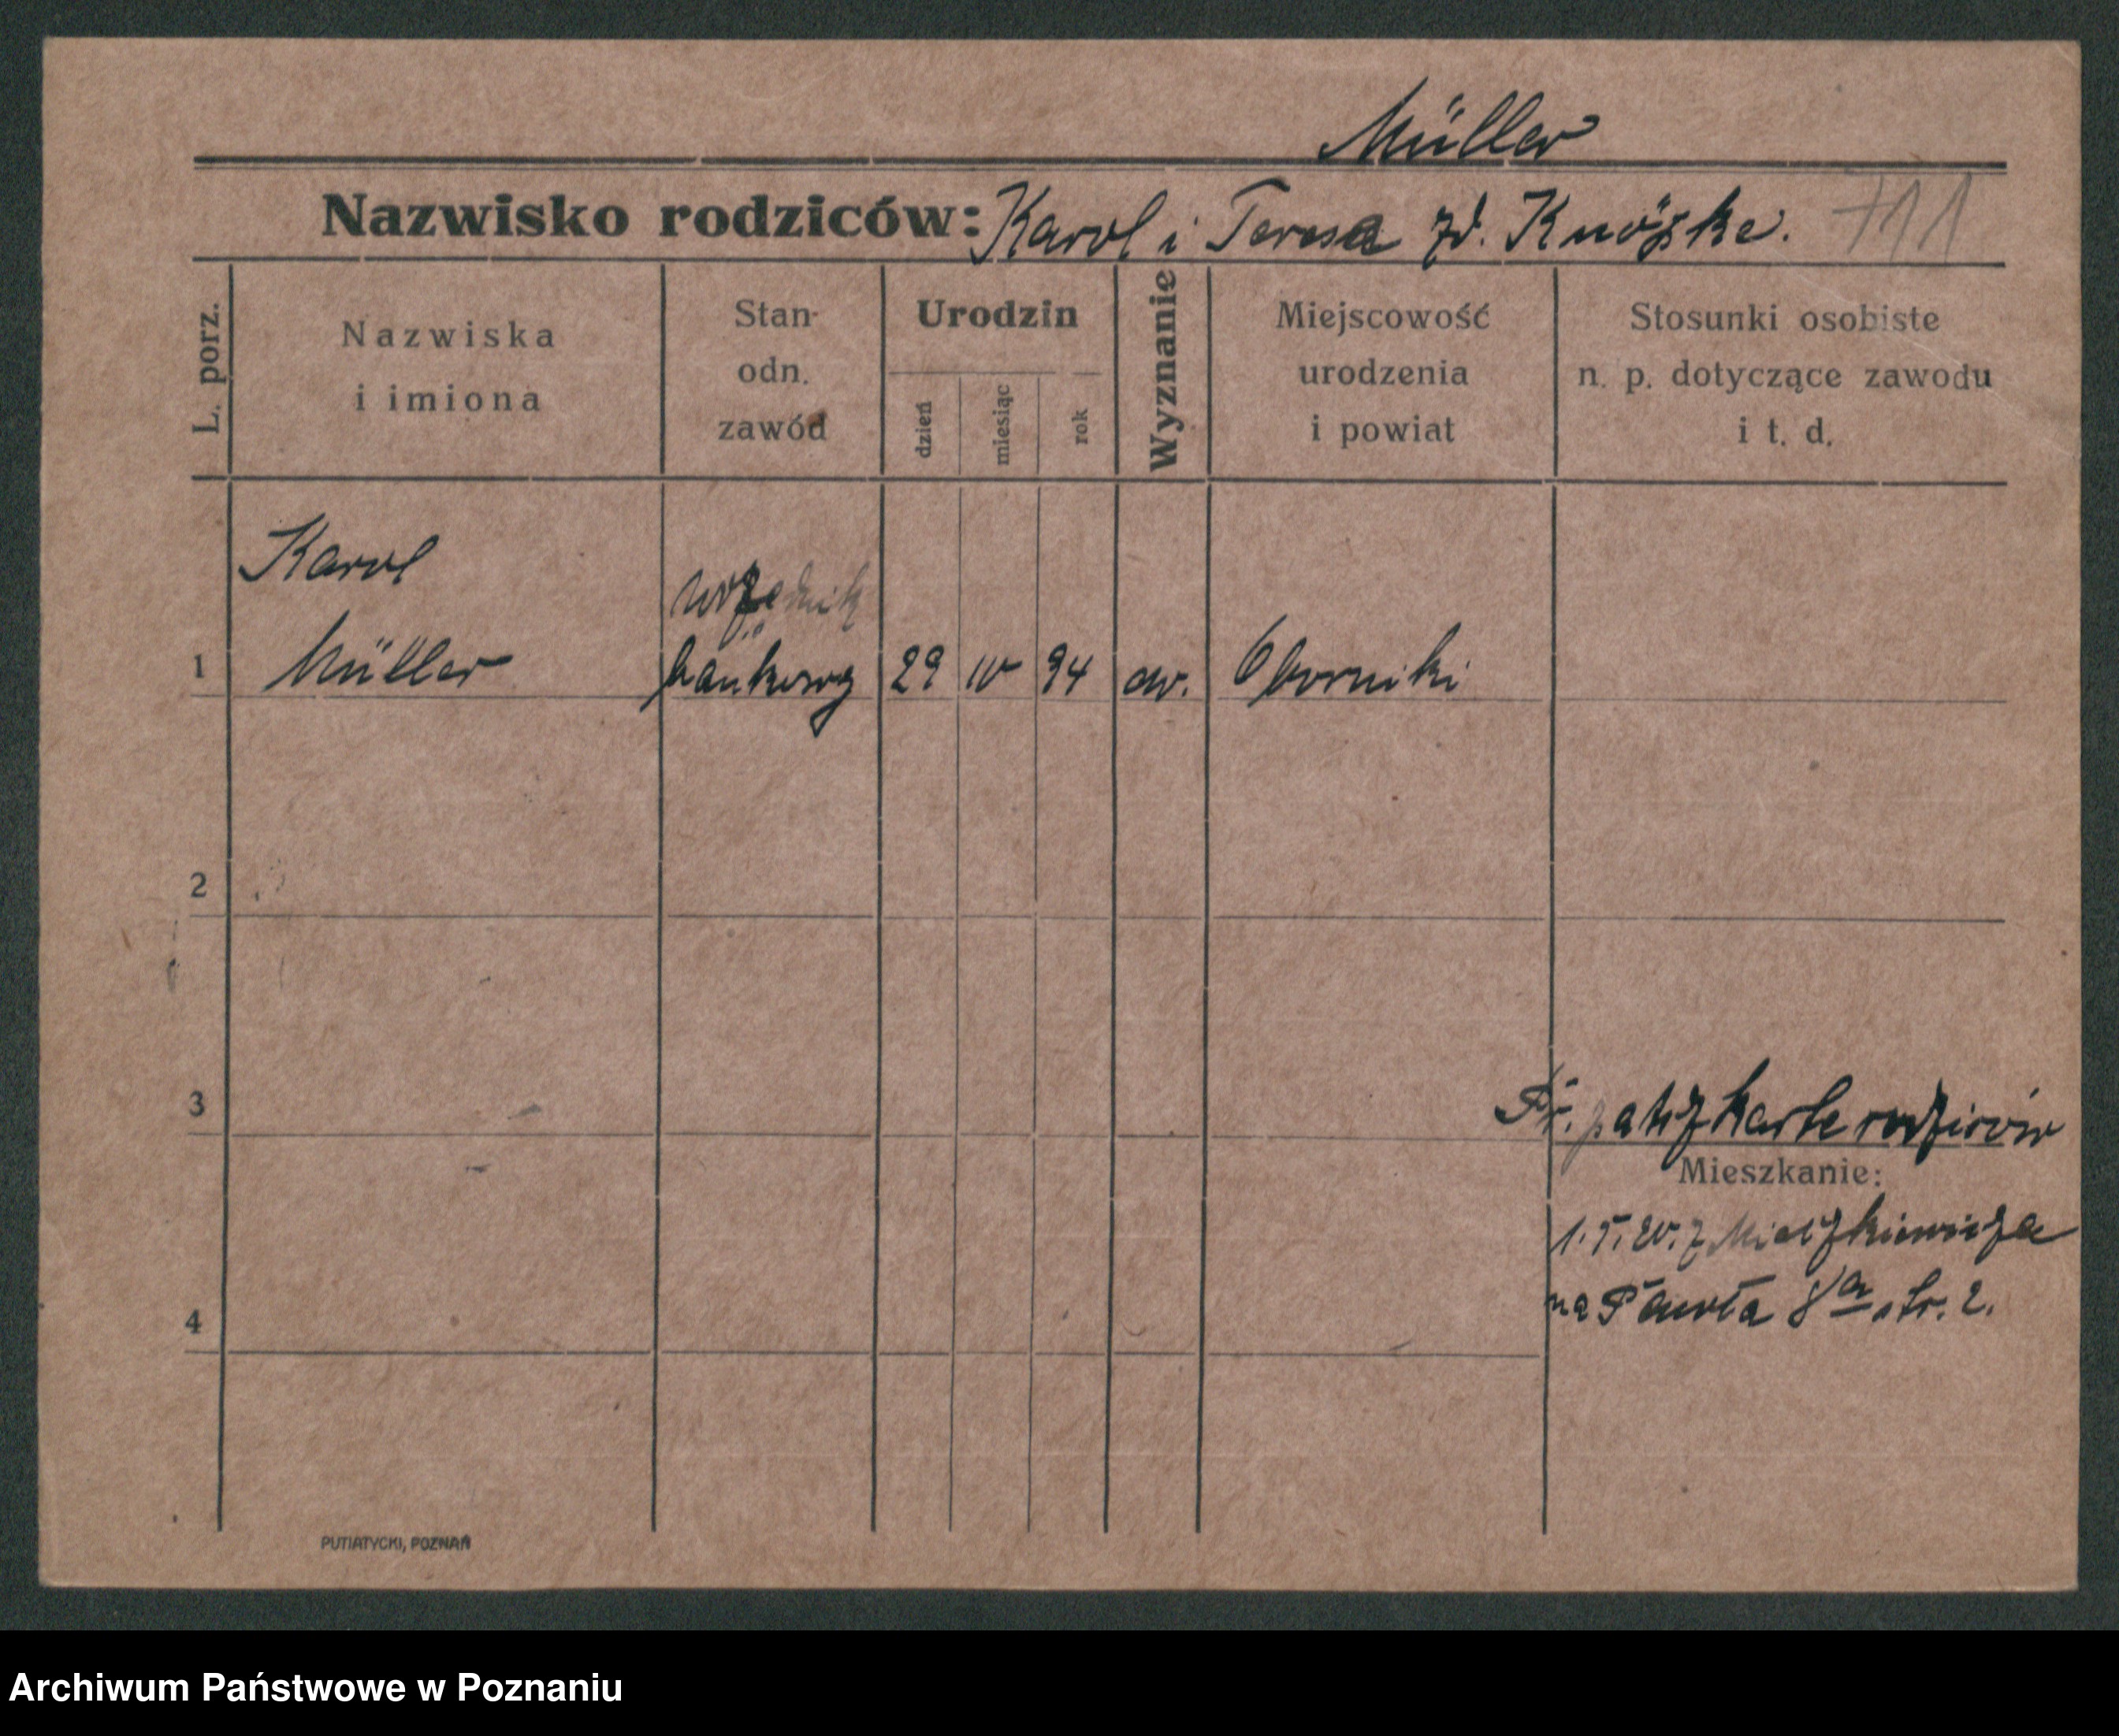 Müller
Nazwisko rodziców: Karol i Teresa zd. Knöske. 711
L. porz.
Nazwiska
i imiona
Stan-
odn.
zawód
Urodzin
dzień
miesiąc
rok
Wyznanie
Miejscowość
urodzenia
i powiat
Stosunki osobiste
n. p. dotyczące zawodu
i t. d.
Karol
urzędnik
1 Müller bankowy 29 IV 94 ew. Oborniki
2
3
karte rodziców
Mieszkanie:
na Pawła 8a str. 2.
4
PUTIATYCKI, POZNAŃ
Archiwum Państwowe w Poznaniu